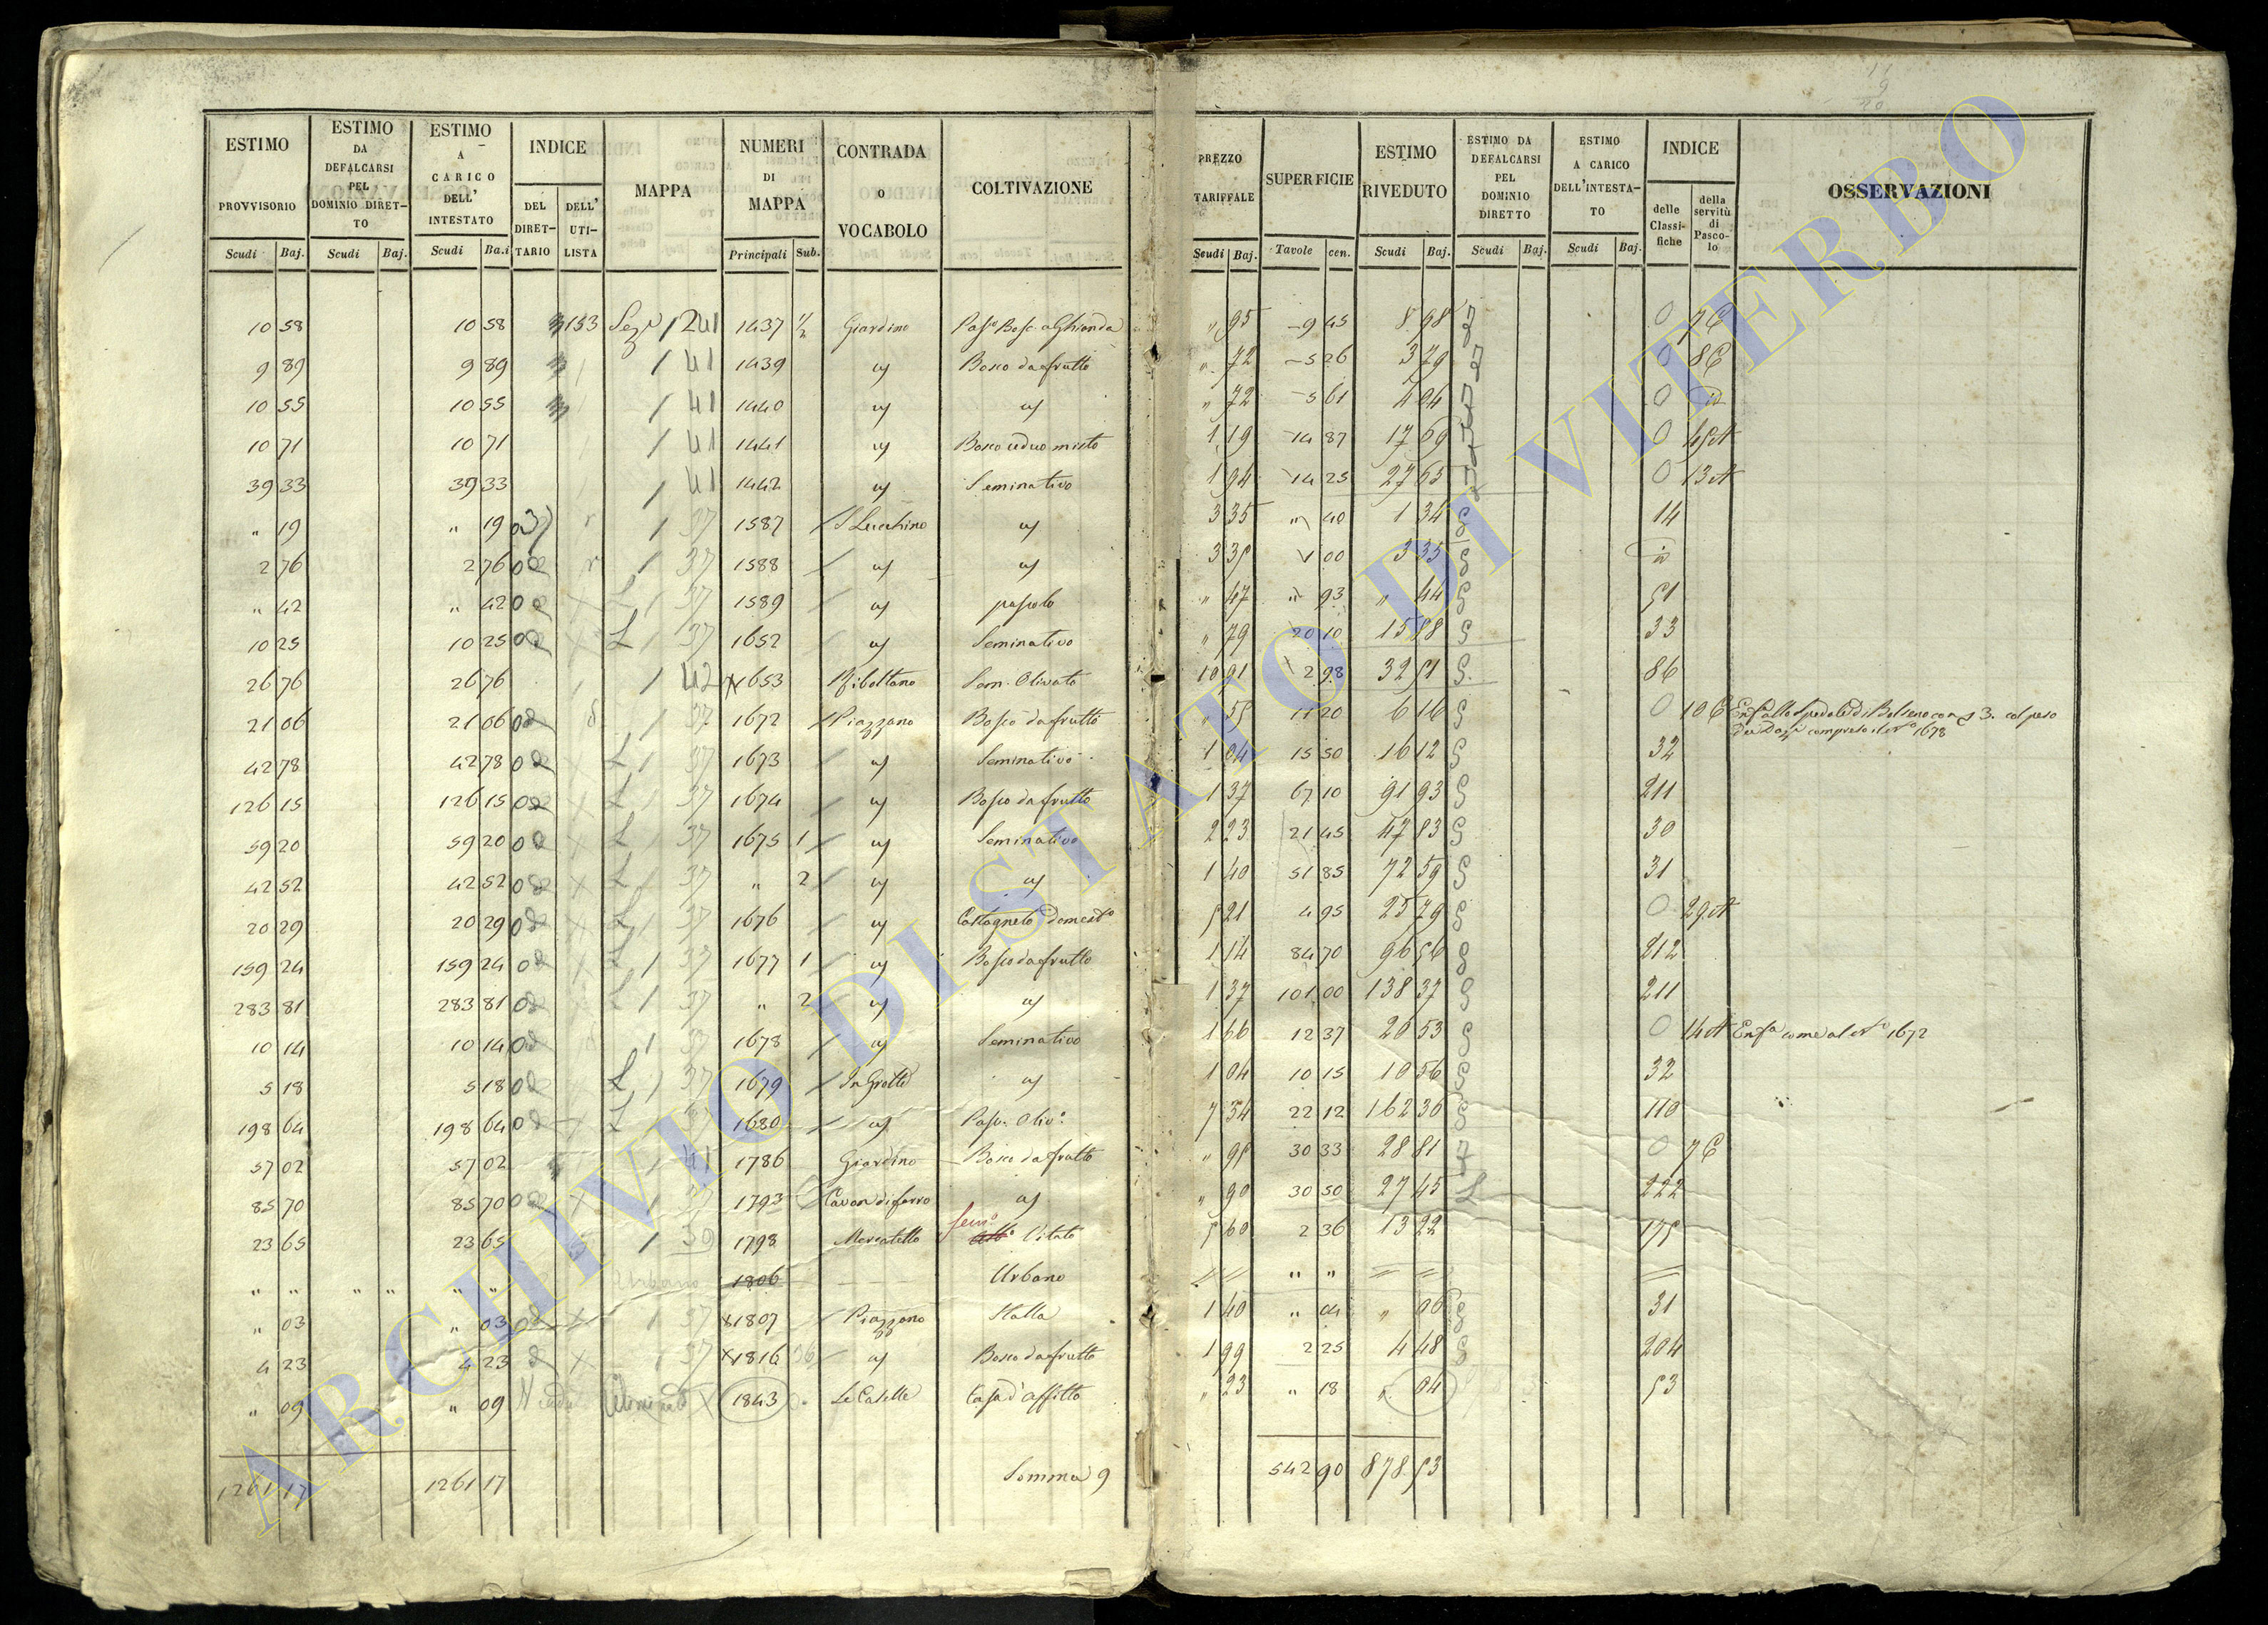 ESTIMO PROVVISORIO Scudi Baj. | ESTIMO DA DEFALCARSI PEL DOMINIO DIRETTO Scudi Baj. | ESTIMO A CARICO DELL' INTESTATO Scudi Ba.i | INDICE DEL DIRETTARIO DELL' UTILISTA | MAPPA | NUMERI DI MAPPA Principali Sub. | CONTRADA O VOCABOLO | COLTIVAZIONE | PREZZO TARIFFALE Scudi Baj. | SUPERFICIE Tavole cen. | ESTIMO RIVEDUTO Scudi Baj. | ESTIMO DA DEFALCARSI PEL DOMINIO DIRETTO Scudi Baj. | ESTIMO A CARICO DELL'INTESTATO Scudi Baj. | INDICE delle Classifiche della servitù di Pascolo | OSSERVAZIONI
10 58 10 58 153 Sez.e 1 41 1437 1/2 Giardino Pas.o Bosc. a Ghianda " 95 9 45 8 98 0 7C
9 89 9 89 1 41 1439 id Bosco da frutto " 72 5 26 3 79 0 8C
10 55 10 55 1 41 1440 id id " 72 5 61 4 04 0 id
10 71 10 71 1 41 1441 id Bosco ceduo misto 1 19 14 87 17 69 0 45A
39 33 39 33 1 41 1442 id Seminativo 1 94 14 25 27 65 0 13A
" 19 " 19 1 37 1587 S Lucchino id 3 35 " 40 1 34 14
2 76 2 76 1 37 1588 id id 3 35 1 00 3 35 id
" 42 " 42 1 37 1589 id pascolo " 47 " 93 " 44 51
10 25 10 25 1 37 1652 id Seminativo " 79 20 10 15 88 33
26 76 26 76 1 42 1653 Ribottano Sem. Olivato 10 91 2 98 32 51 86
21 06 21 06 1 37 1672 Piazzano Bosco da frutto " 55 11 20 6 16 0 10C Enf.a allo Spedale di Bolseno con s 3. col peso
compreso il N.o 1678
42 78 42 78 1 37 1673 id Seminativo 1 04 15 50 16 12 32
126 15 126 15 1 37 1674 id Bosco da frutto 1 37 67 10 91 93 211
59 20 59 20 1 37 1675 1 id Seminativo 2 23 21 45 47 83 30
42 52 42 52 1 37 " 2 id id 1 40 51 85 72 59 31
20 29 20 29 1 37 1676 id Castagneto domest.o 5 21 4 95 25 79 0 29A
159 24 159 24 1 37 1677 1 id Bosco da frutto 1 14 84 70 96 56 212
283 81 283 81 1 37 " 2 id id 1 37 101 00 138 37 211
10 14 10 14 1 37 1678 id Seminativo 1 66 12 37 20 53 0 14A Enf.a come al N.o 1672
5 18 5 18 1 37 1679 In Grotte id 1 04 10 15 10 56 32
198 64 198 64 1 37 1680 id Pasc. Oliv.o 7 34 22 12 162 36 110
57 02 57 02 1 41 1786 Giardino Bosco da frutto " 95 30 33 28 81 0 7C
85 70 85 70 1 37 1793 Cavon di ferro id " 90 30 50 27 45 222
23 65 23 65 1 39 1798 Mercatello Sem.o Vitato 5 60 2 36 13 22 175
" " " " " " Urbano 1806 Urbano " "
" 03 " 03 1 37 1807 Piazzano Stalla 1 40 " 04 " 06 31
4 23 4 23 1 37 1816 id Bosco da frutto 1 99 2 25 4 48 204
" 09 " 09 1843 Le Caselle Casa d'affitto " 23 " 18 " 04 53
1261 17 1261 17 Somma 9 542 90 878 53
ARCHIVIO DI STATO DI VITERBO